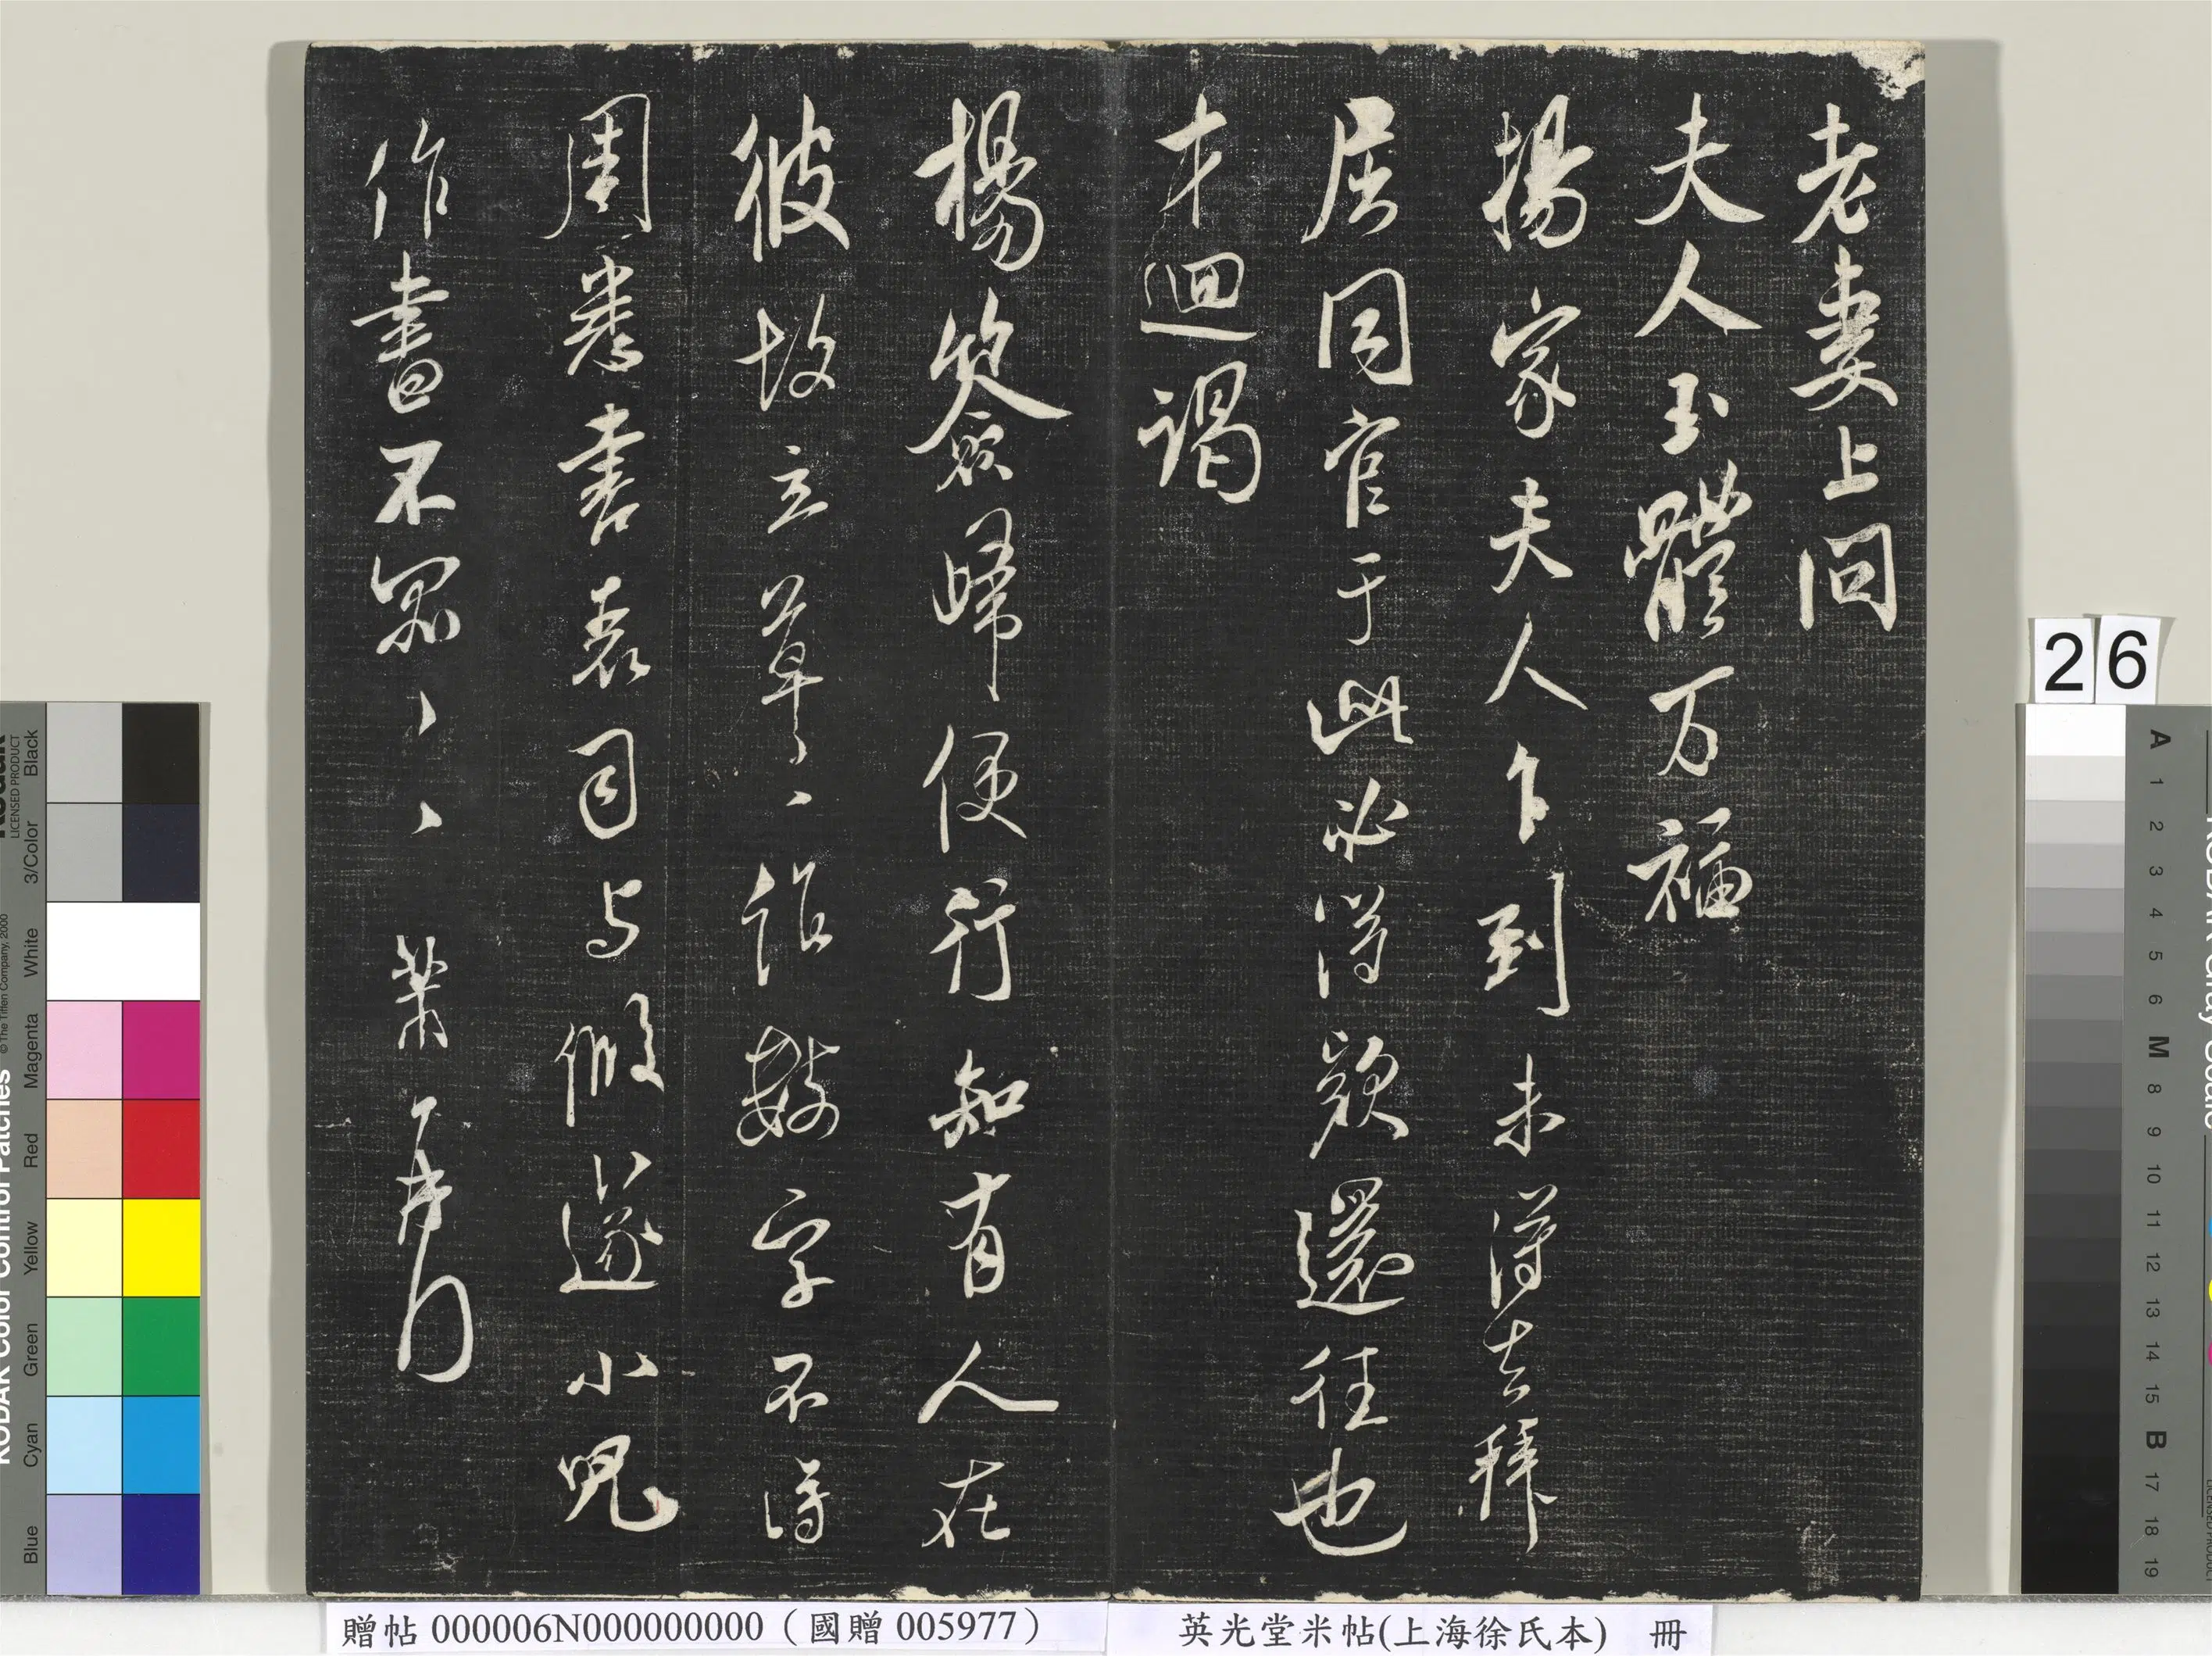 老妻上問
夫人玉體万福
楊家夫人乍到未得去拜
屈同官于此必得欵還往也
才迴謁
楊簽歸便行知有人在
彼故立草〻作數字不得
周悉書表司与假遂小兒
作書不罪〻〻 芾
26
贈帖 000006N000000000（國贈 005977）
英光堂米帖(上海徐氏本) 冊
KODAK Color Control Patches
© The Tiffen Company, 2000
LICENSED PRODUCT
Blue Cyan Green Yellow Red Magenta White 3/Color Black
A 1 2 3 4 5 6 M 8 9 10 11 12 13 14 15 B 17 18 19